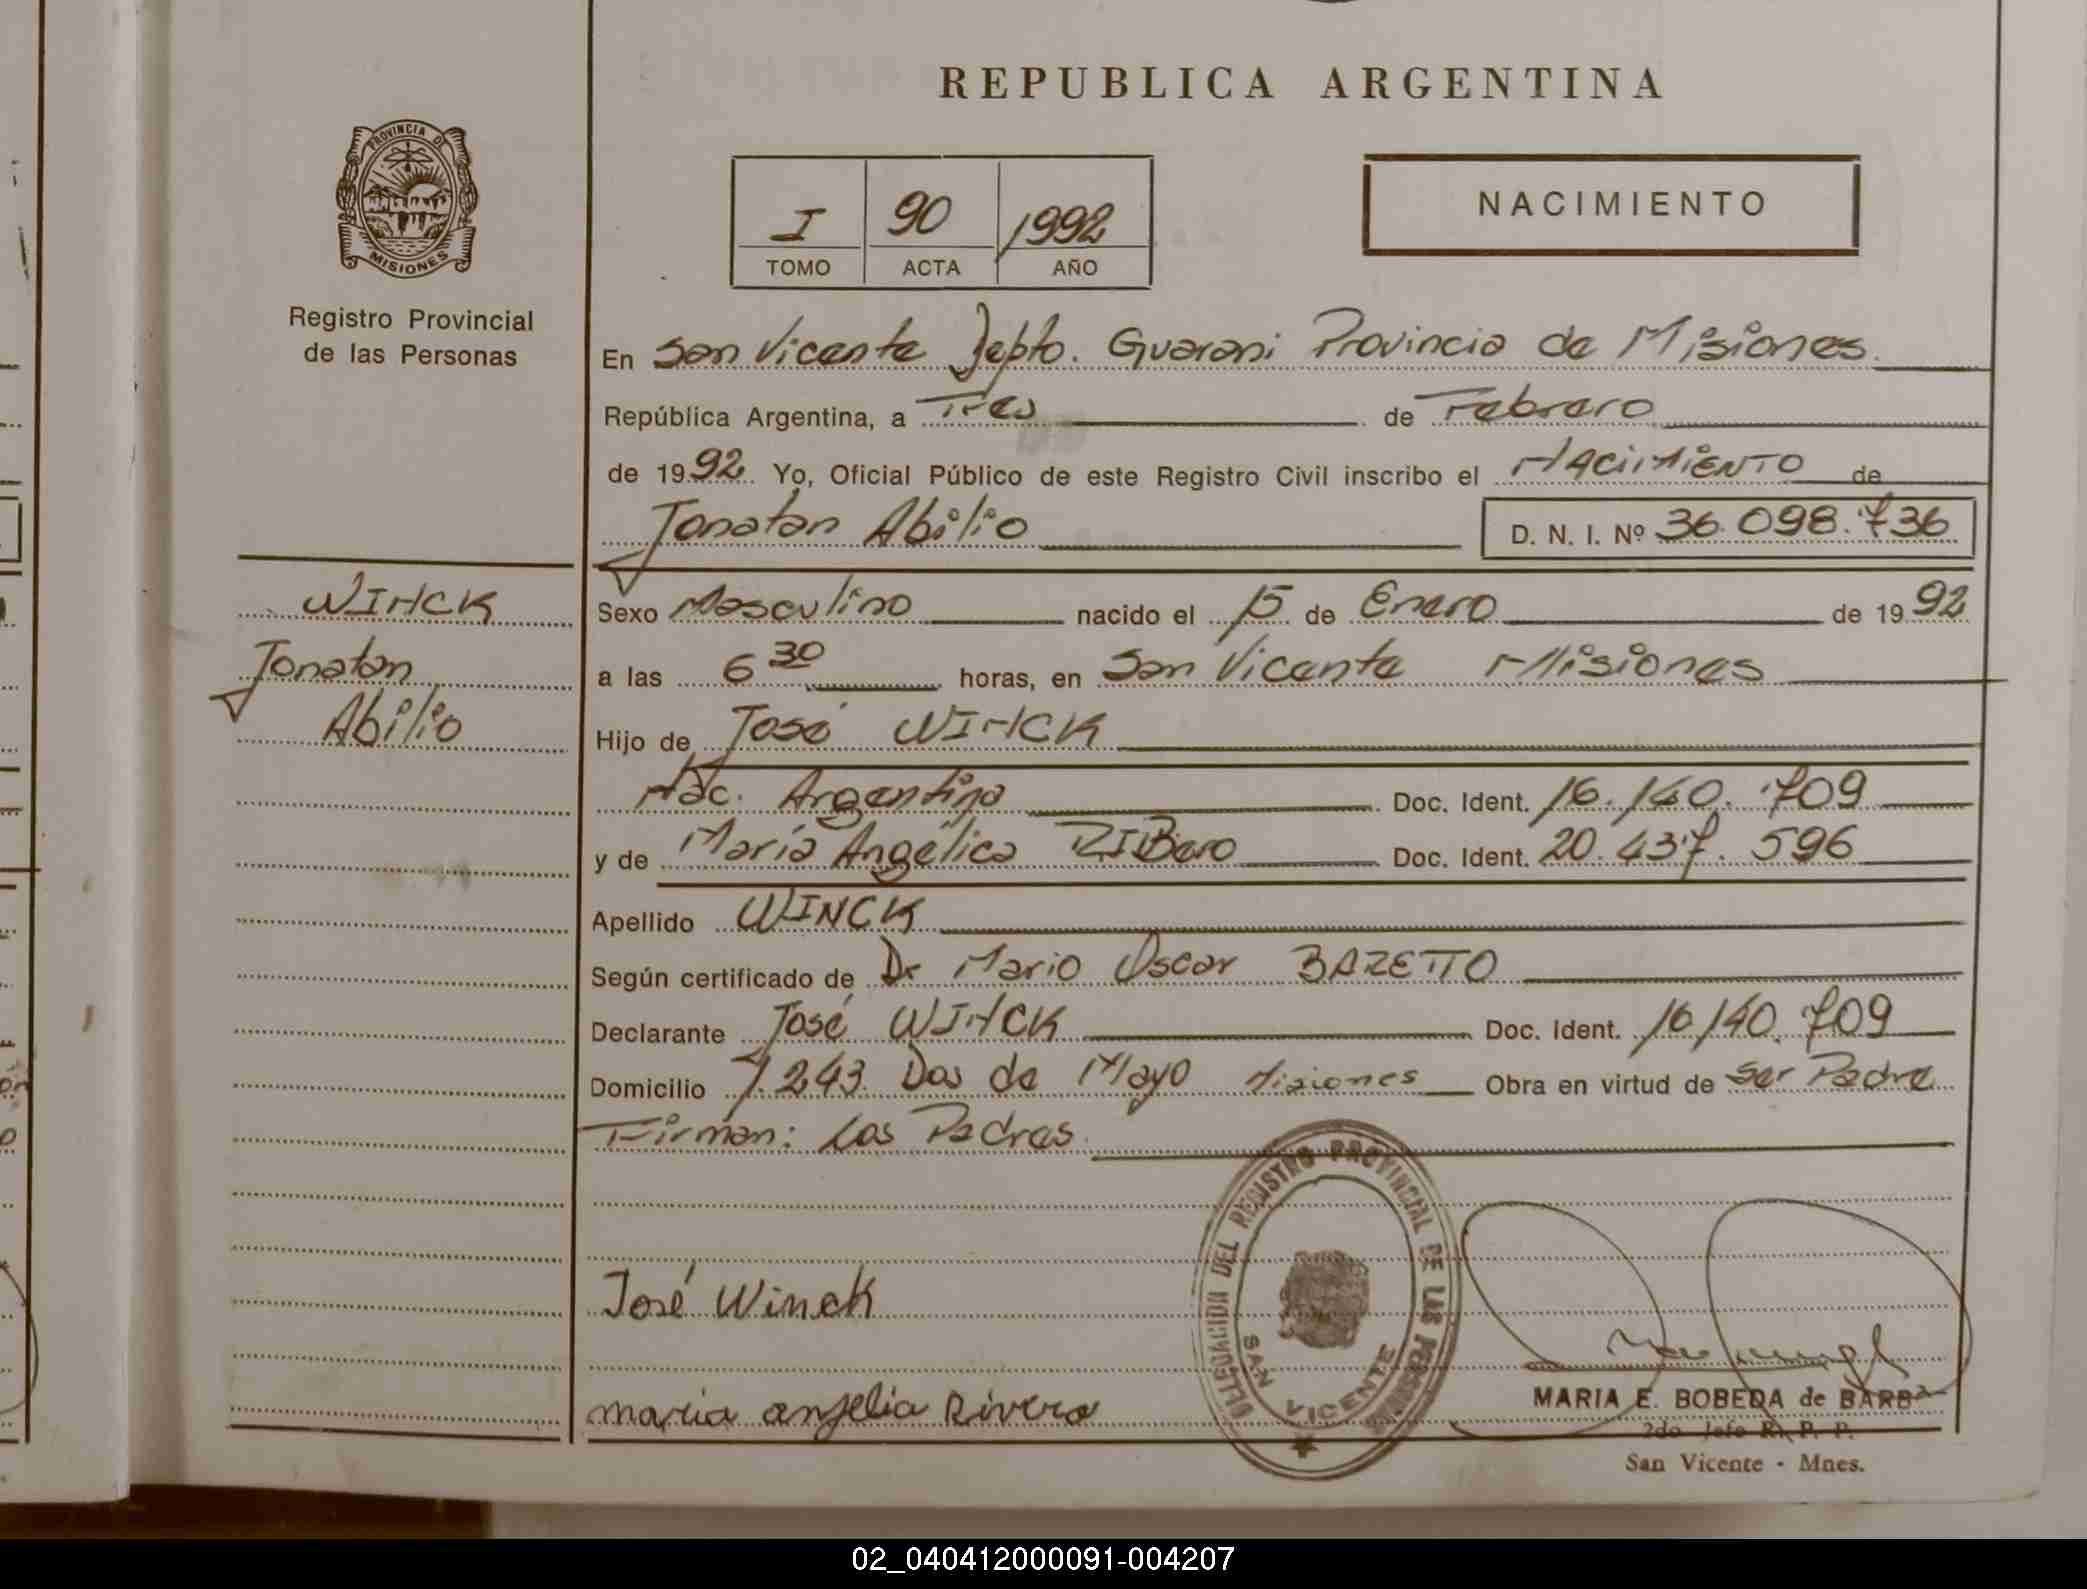 REPUBLICA ARGENTINA
PROVINCIA DE
MISIONES
I 90 1992
TOMO ACTA AÑO
NACIMIENTO
Registro Provincial
de las Personas
En San Vicente Depto. Guarani Provincia de Misiones.
República Argentina, a Tres de Febrero
de 1992. Yo, Oficial Público de este Registro Civil inscribo el NACIMIENTO de
Jonatan Abilio D. N. I. Nº 36.098.736
WINCK
Jonatan
Abilio
Sexo Masculino nacido el 15 de Enero de 1992
a las 6 30 horas, en San Vicente Misiones
Hijo de José WINCK
Nac. Argentina Doc. Ident. 16.140.709
y de María Angélica Doc. Ident. 20.437.596
Apellido WINCK
Según certificado de Dr Mario Oscar BAZETTO
Declarante José WINCK Doc. Ident. 16.140.709
Domicilio 7.243 Dos de Mayo Misiones Obra en virtud de Ser Padre
Firman: Los Padres.
José Winck
maria anjelia Rivero
DELEGACION DEL REGISTRO PROVINCIAL DE LAS PERSONAS
SAN VICENTE
MARIA E. BOBEDA de BARBA
2do Jefe R. P. P.
San Vicente - Mnes.
02_040412000091-004207